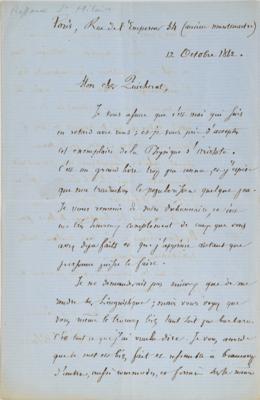 Paris, Rue de l'Empereur 34 (ancien montmartre)
12 Octobre 1862.
Mon cher Quicherat,
Je vous assure que c'est moi qui suis
en retard avec vous; et je vous prie d'accepter
cet exemplaire de la Physique d'Aristote.
C'est un grand livre trop peu connu et j'espère
que ma traduction le popularisera quelque peu.
Je vous remercie de votre
complément de ceux que vous
avez déjà faits et que j'apprécie autant que
personne puisse le faire.
Je ne demanderais pas mieux que de me
rendre linguistique; mais vous voyez que
vous même le trouvez tant soit peu barbare.
C'est tout ce que j'ai voulu dire. Je vous accorde
que le mot est bien fait et ressemble à beaucoup
d'autres, aussi